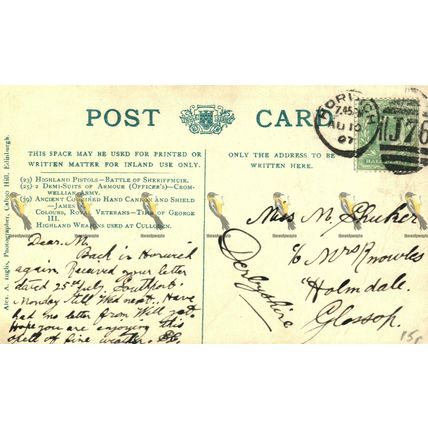 POST CARD
THIS SPACE MAY BE USED FOR PRINTED OR
WRITTEN MATTER FOR INLAND USE ONLY.
ONLY THE ADDRESS TO BE
WRITTEN HERE.
(23) Highland Pistols—Battle of Sheriffmuir.
(25) 2 Demi-Suits of Armour (Officer's)—Crom-
wellian Army.
(39) Ancient Combined Hand Cannon and Shield
—James
Colours, Royal Veterans—Time of George
III.
Highland Weapons used at Culloden.
Alex. A. Inglis, Photographer, Calton Hill, Edinburgh.
Dear M.
Back in Horwich
again Received your letter
dated 25th July. Southport
Monday till Wed next. Have
had no letter from Will yet.
Hope you are enjoying this
spell of fine weather.
Miss M. Shuker
c/o Mrs Knowles
"Holmdale.
Glossop.
Derbyshire
HORWICH
7.45
AU 10
07
J76
HALF
15p